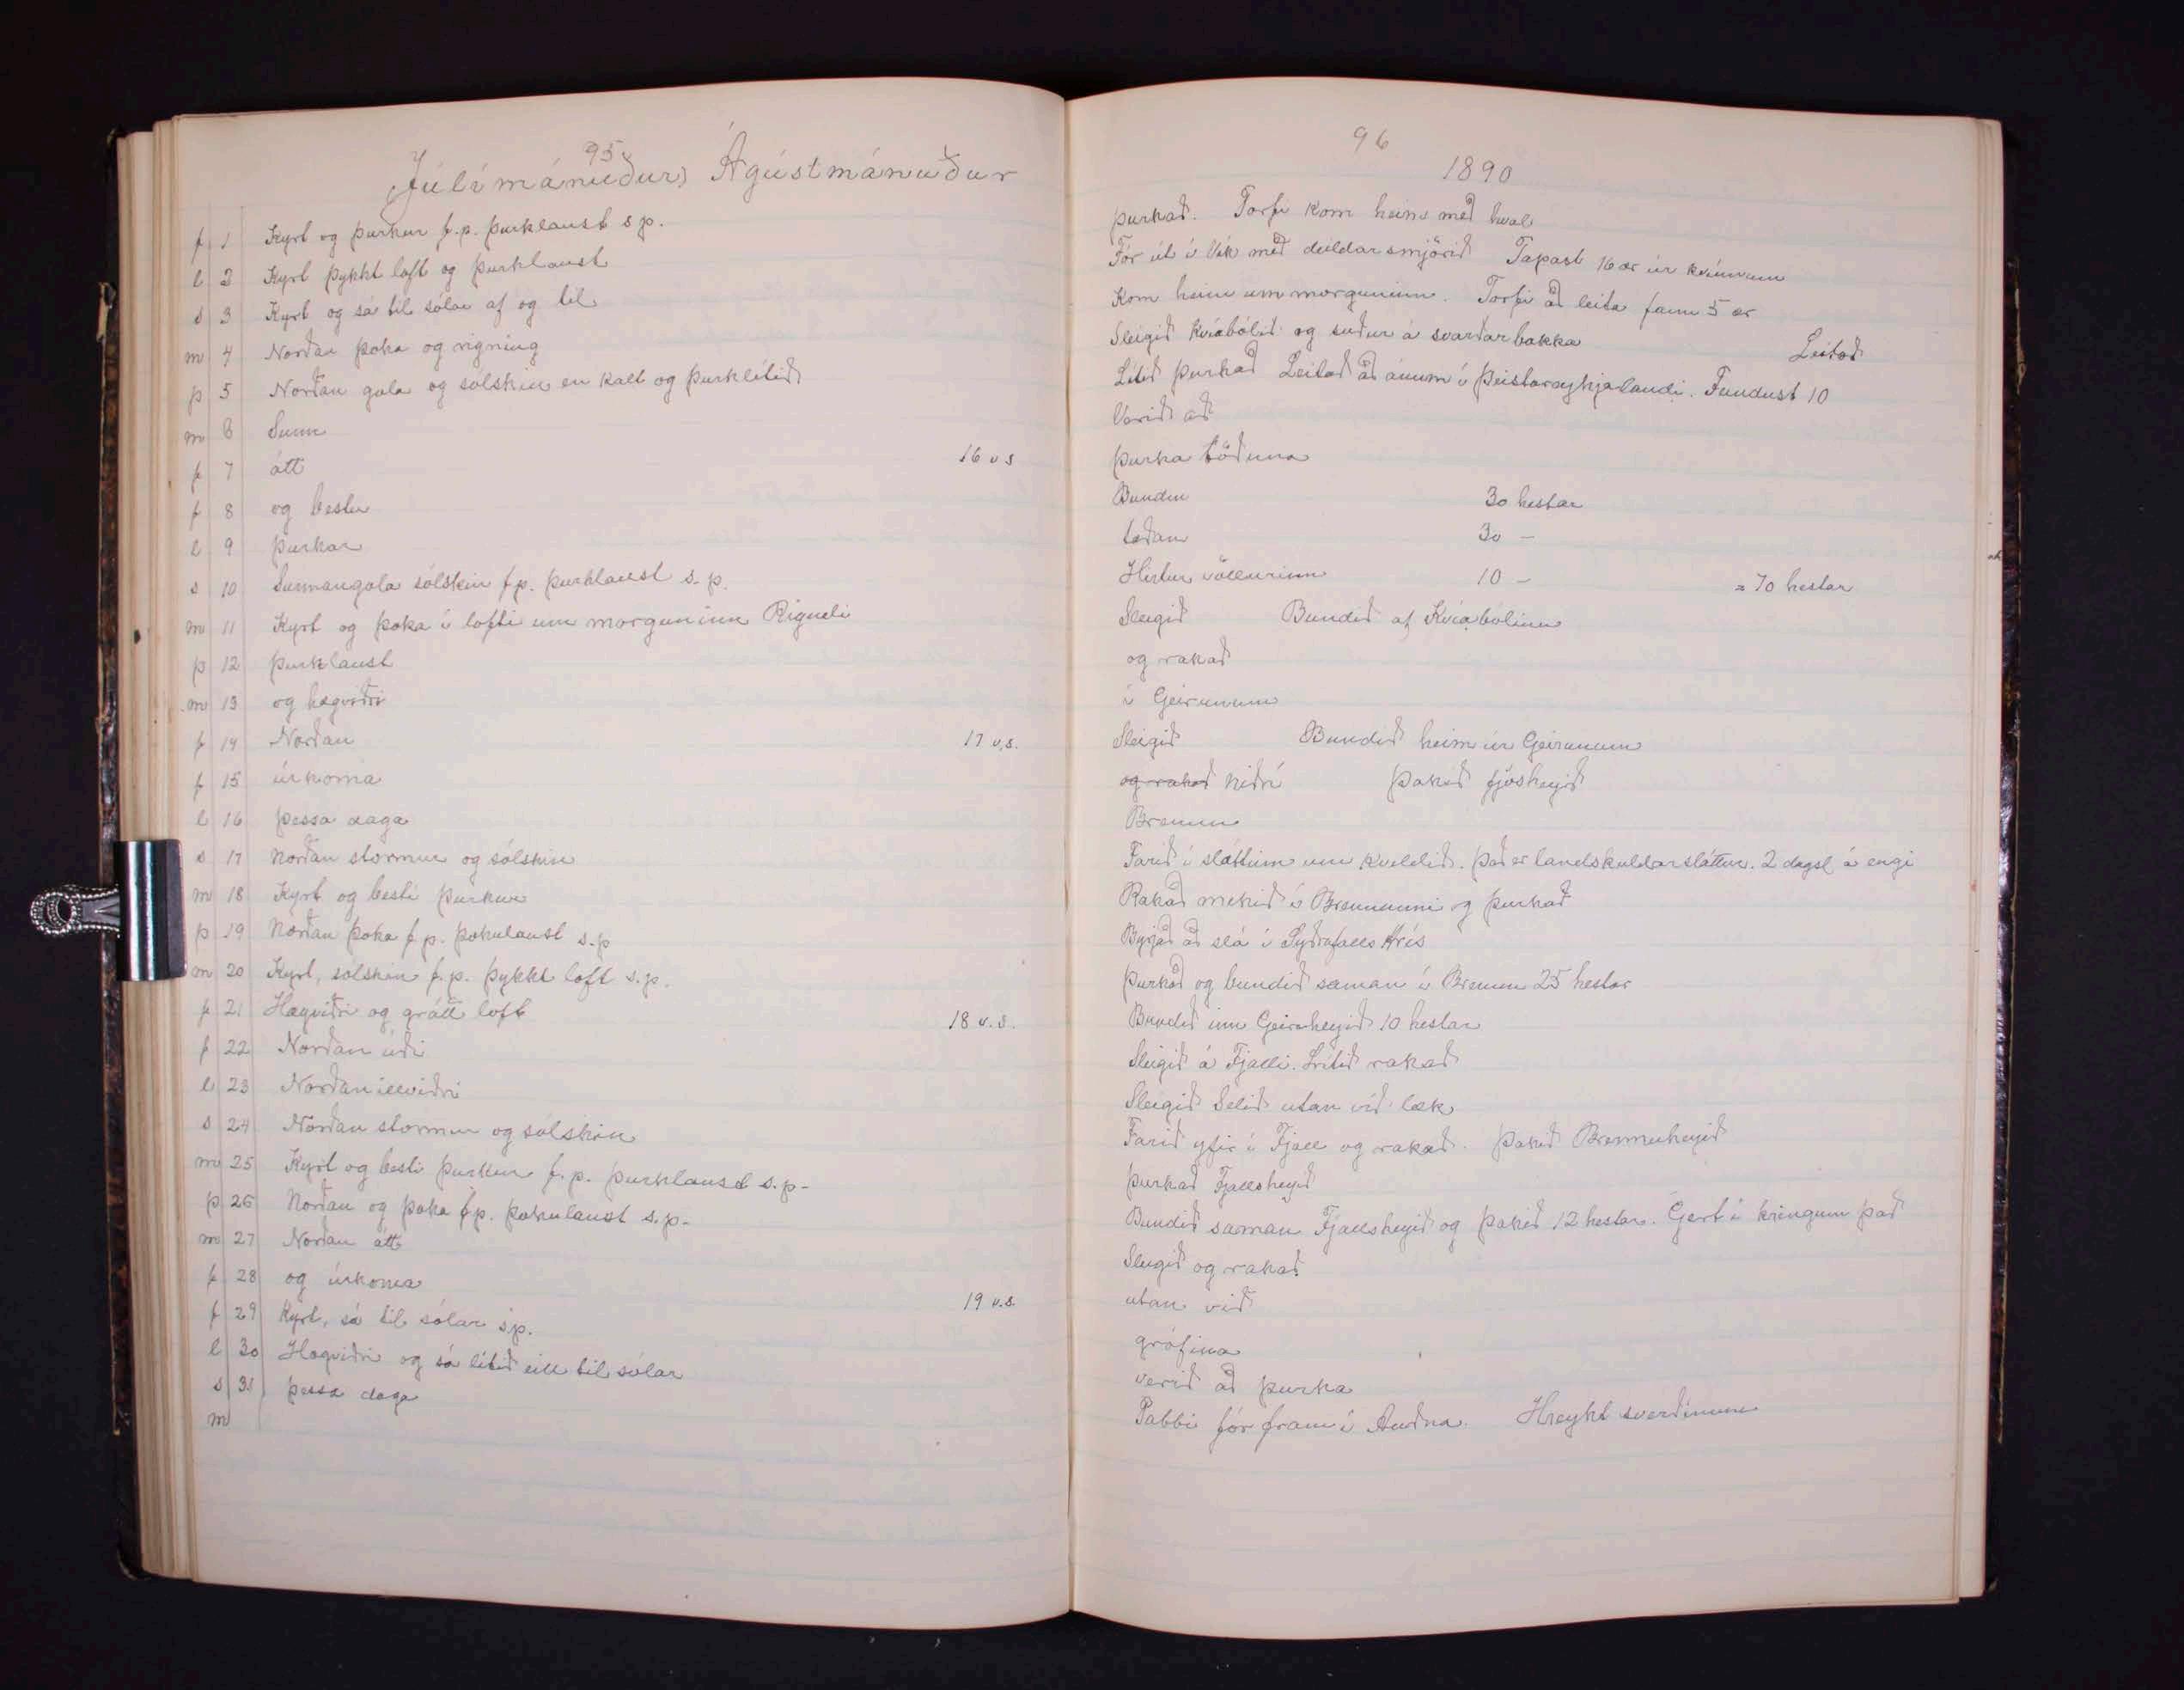 95
(Júlímánuður) Ágústmánuður
f 1 Kyrt og þurkur f.p. þurklaust s p.
l 2 Kyrt þykkt loft og þurklaust
s 3 Kyrt og sá til sólar af og til
m 4 Norðan þoka og rigning
þ 5 Norðan gola og sólskin en kalt og þurklítið
m 6 Sunn
f 7 átt 16 v s
f 8 og bestu
l 9 þurkar
s 10 Sunnangola sólskin f.p. þurklaust s. p.
m 11 Kyrt og þoka í lofti um morguninn Rigndi
þ 12 þurklaust
m 13 og hægviðri
f 14 Norðan 17 v,s.
f 15 úrkoma
l 16 þessa daga
s 17 Norðan stormur og sólskin
m 18 Kyrt og besti þurkur
þ 19 Norðan þoka f p. þokulaust s.p
m 20 Kyrt, sólskin f.p. þykkt loft s.p.
f 21 Hægviðri og grátt loft 18 v.s.
f 22 Norðan úði
l 23 Norðanillviðri
s 24 Norðan stormur og sólskin
m 25 Kyrt og besti þurkur f.p. þurklaust s.p-
þ 26 Norðan og þoka f p. þokulaust s.p-
m 27 Norðan átt
f 28 og úrkoma
f 29 Kyrt, sá til sólar s.p. 19 v.s.
l 30 Hægviðri og sá lítið eitt til sólar
s 31 þessa daga
m
96
1890
þurkað. Torfi kom heim með hval
Fór út í Vík með deildarsmjörið Tapast 16 ær úr kvíunum
Kom heim um morguninn. Torfi að leita fann 5 ær
Sleigið Kvíabólið og suður á svarðarbakka Leitað
Lítið þurkað Leitað að ánum í Þeistareykjalandi. Fundust 10
Verið að
þurka töðuna
Bundin 30 hestar
taðan 30 -
Hirtur völlurinn 10 - = 70 hestar
Sleigið Bundið af Kvíabólinu
og rakað
í Geirunum
Sleigið Bundið heim úr Geirunum
og rakað niðrí Þakið fjósheyið
Brennu
Farið í sláttinn um kveldið. Það er landskuldarsláttur. 2 dagsl á engi
Rakað mikið í Brennunni og þurkað
Byrjað að slá í Syðrafalls Hrís
Þurkað og bundið saman í Brennu 25 hestar
Bundið inn Geiraheyið 10 hestar
Sleigið á Fjalli. Lítið rakað
Sleigið Selið utan við læk
Farið yfir í Fjall og rakað. Þakið Brennuheyið
Þurkað Fjallsheyið
Bundið saman Fjallsheyið og þakið 12 hestar. Gert í kringum það
Sleigið og rakað
utan við
grófina
verið að þurka
Pabbi fór fram í Auðna. Hreykt sverðinum